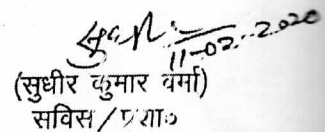 11-02-2020
(सुधीर कुमार वर्मा)
सविस/प्रशा०